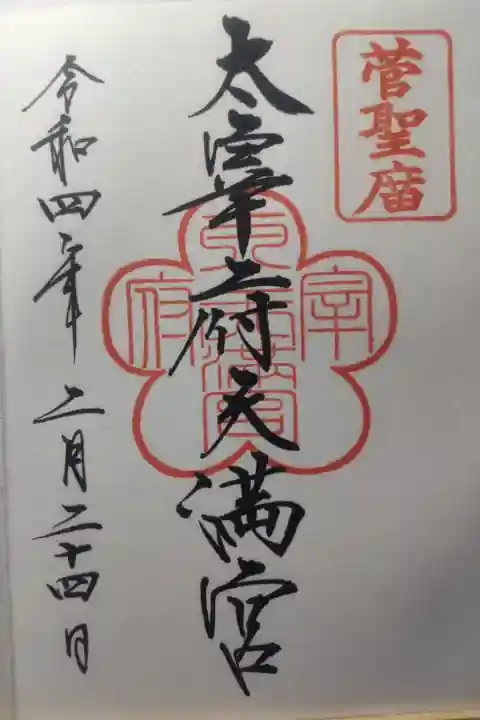 菅聖庿
太宰府天満宮
令和四年二月二十四日